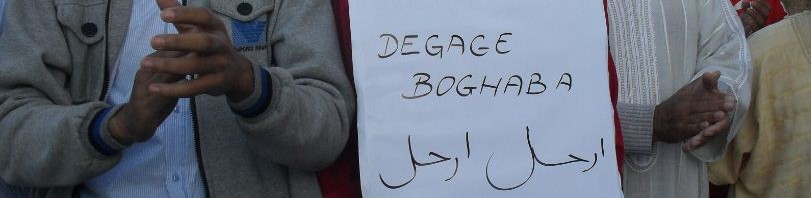 DEGAGE
BOGHABA
ارحل ارحل